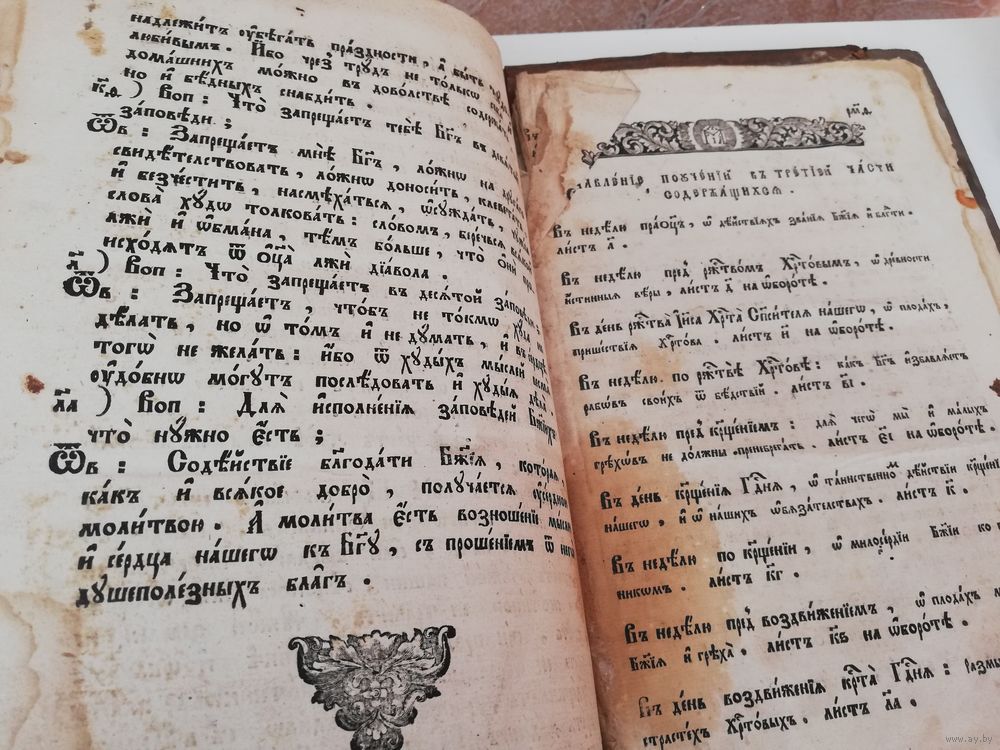 надлежи́тъ ᲂу҆бѣга́ть пра́здности, и҆ бы́ть
люби́вымъ. И҆́бо чрез̾ трꙋ́дъ не то́лькѡ
дома́шнихъ мо́жно въ дово́льствѣ
но и҆ бѣ́дныхъ снабди́ть.
к҃ѳ ) Во́п: Что̀ запреща́етъ тебѣ̀ Бг҃ъ въ
за́повѣди;
Ѿв: Запреща́етъ мнѣ̀ Бг҃ъ, ло́жнѡ на
свидѣ́тельствовать, ло́жнѡ доноси́ть,
и҆ безче́стить, насмѣха́ться, ѡ҆сꙋжда́ть,
слова̀ хꙋ́дѡ толкова́ть: сло́вомъ, бере́чься
лжѝ и҆ ѡ҆бма́на, тѣ́мъ бо́льше, что̀ ѻ҆нѝ
исхо́дѧтъ ѿ ѻ҆ц҃а̀ лжѝ дїа́вола.
л҃ ) Во́п: Что̀ запреща́етъ въ десѧ́той
Ѿв: Запреща́етъ, что́бъ не то́кмѡ хꙋ́да не
дѣ́лать, но ѡ҆ то́мъ и҆ не дꙋ́мать, и҆ въ се́рдцѣ
тогѡ̀ не жела́ть: и҆́бо ѿ хꙋды́хъ мы́слей
ᲂу҆до́бнѡ мо́гꙋтъ послѣ́довать и҆ хꙋды́ѧ дѣла̀.
л҃а ) Во́п: Длѧ̀ и҆сполне́нїѧ за́повѣдей Бж҃їихъ
что̀ нꙋ́жно є҆́сть;
Ѿв: Содѣ́йствїе бл҃года́ти Бж҃їѧ, кото́раѧ,
ка́къ и҆ всѧ́кое добро̀, полꙋча́етсѧ ᲂу҆се́рдною
моли́твою. А҆ моли́тва є҆́сть возноше́нїе мы́сли
и҆ се́рдца на́шегѡ къ Бг҃ꙋ, съ проше́нїемъ ѿ негѡ̀
дꙋшеполе́зныхъ бла́гъ.
Ѡ҆главле́нїе, поꙋче́нїй въ тре́тїей ча́сти
содержа́щихсѧ.
Въ недѣ́лю пра́ѻц҃ъ, ѡ҆ дѣ́йствїѧхъ зва́нїѧ Бж҃їѧ и҆ бл҃гти.
ли́стъ а҃.
Въ недѣ́лю пред̾ рж҃тво́мъ Хрⷭ҇то́вымъ, ѡ҆ дре́вности
и҆́стинныѧ вѣ́ры, ли́стъ д҃ на ѡ҆боро́тѣ.
Въ де́нь рж҃тва̀ І҆и҃са Хрⷭ҇та̀ Сп҃си́телѧ на́шегѡ, ѡ҆ плода́хъ,
прише́ствїѧ Хрⷭ҇то́ва. ли́стъ и҃ на ѡ҆боро́тѣ.
Въ недѣ́лю. по рж҃твѣ̀ Хрⷭ҇то́вѣ: ка́къ Бг҃ъ и҆збавлѧ́етъ
рабѡ́въ свои́хъ ѿ бѣ́дствїй. ли́стъ в҃і.
Въ недѣ́лю пред̾ кр҃ще́нїемъ: длѧ̀ чегѡ̀ мы̀ и҆ ма́лыхъ
грѣхѡ́въ не должны̀ пренебрега́ть. ли́стъ є҃і на ѡ҆боро́тѣ.
Въ де́нь кр҃ще́нїѧ Гдⷭ҇нѧ, ѡ҆ та́инственномъ дѣ́йствїи кр҃ще́нїѧ
на́шегѡ, и҆ ѡ҆ на́шихъ ѡ҆бѧза́тельствахъ. ли́стъ к҃.
Въ недѣ́лю по кр҃ще́нїи, ѡ҆ милосе́рдїи Бж҃їи ко
никомъ. ли́стъ к҃г.
Въ недѣ́лю пред̾ воздви́женїемъ, ѡ҆ плода́хъ
Бж҃їѧ и҆ грѣха̀. ли́стъ к҃в на ѡ҆боро́тѣ.
Въ де́нь воздви́женїѧ крⷭ҇та̀ Гдⷭ҇нѧ:
страсте́хъ Хрⷭ҇то́выхъ. ли́стъ л҃а.
www.ay.by